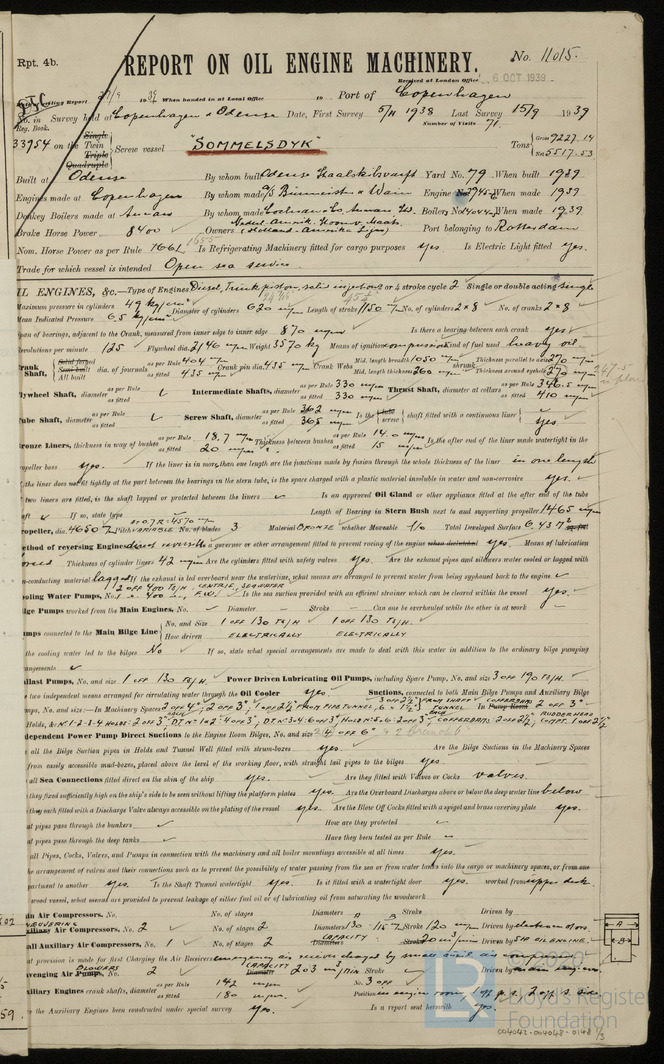 Rpt. 4b.
REPORT ON OIL ENGINE MACHINERY.
No. 11015.
Received at London Office 6 OCT 1939
When handed in at Local Office Port of Copenhagen
No. in Survey held at Copenhagen & Odense Date, First Survey 5/11 1938 Last Survey 15/9 1939
Reg. Book. Number of Visits 71.
33954 on the Single Twin Triple Quadruple Screw vessel "SOMMELSDYK" Tons Gross 9227.14 Net 5517.53
Built at Odense By whom built Odense Staalskibsvaerft Yard No. 79 When built 1939
Engines made at Copenhagen By whom made A/S Burmeister & Wain Engine No. When made 1939
Donkey Boilers made at Annan By whom made Cochran & Co. Annan Ltd. Boiler No. When made 1939
Brake Horse Power 8400 Owners (Holland-Amerika Lijn) Port belonging to Rotterdam
Nom. Horse Power as per Rule 1661 Is Refrigerating Machinery fitted for cargo purposes yes Is Electric Light fitted yes.
Trade for which vessel is intended Open sea service.
OIL ENGINES, &c.—Type of Engines Diesel, Trunk piston, solid injection 2 or 4 stroke cycle 2 Single or double acting single
Maximum pressure in cylinders 49 kg/cm² Diameter of cylinders 620 mm Length of stroke 1150 mm No. of cylinders 2 x 8 No. of cranks 2 x 8
Mean Indicated Pressure 6.5 kg/cm²
Span of bearings, adjacent to the Crank, measured from inner edge to inner edge 870 mm Is there a bearing between each crank yes
Revolutions per minute 125 Flywheel dia. 2146 mm Weight 3570 kg Means of ignition compression Kind of fuel used heavy oil
Crank Shaft, Solid forged Semi built All built dia. of journals as per Rule 404 mm as fitted 435 mm Crank pin dia. 435 mm Crank Webs Mid. length breadth 1050 mm Mid. length thickness 260 mm shrunk Thickness parallel to axis 270 mm Thickness around eyehole 270 mm
Flywheel Shaft, as per Rule as fitted Intermediate Shafts, as per Rule 330 mm as fitted 330 mm Thrust Shaft, diameter at collars as per Rule 346.5 mm as fitted 410 mm
Tube Shaft, as per Rule as fitted Screw Shaft, as per Rule 362 mm as fitted 365 mm Is the tube screw shaft fitted with a continuous liner yes.
Bronze Liners, thickness in way of bushes as per Rule 18.7 mm as fitted 20 mm Thickness between bushes as per Rule 14.0 mm as fitted 15 mm Is the after end of the liner made watertight in the
propeller boss yes. If the liner is in more than one length are the junctions made by fusion through the whole thickness of the liner in one length
If the liner does not fit tightly at the part between the bearings in the stern tube, is the space charged with a plastic material insoluble in water and non-corrosive yes.
If two liners are fitted, is the shaft lapped or protected between the liners Is an approved Oil Gland or other appliance fitted at the after end of the tube
shaft If so, state type Length of Bearing in Stern Bush next to and supporting propeller 1465 mm
Propeller, dia. 4650 Pitch VARIABLE No. of blades 3 Material BRONZE whether Moveable No Total Developed Surface 6.437
Method of reversing Engines direct reversible Is a governor or other arrangement fitted to prevent racing of the engine when declutched yes. Means of lubrication
forced Thickness of cylinder liners 42 mm Are the cylinders fitted with safety valves yes. Are the exhaust pipes and silencers water cooled or lagged with
non-conducting material lagged If the exhaust is led overboard near the waterline, what means are arranged to prevent water from being syphoned back to the engine
Cooling Water Pumps, No. Is the sea suction provided with an efficient strainer which can be cleared within the vessel yes.
Bilge Pumps worked from the Main Engines, No. Diameter Stroke Can one be overhauled while the other is at work
Pumps connected to the Main Bilge Line No. and Size 1 OFF 130 TS/H. 1 OFF 130 TS/H.
How driven ELECTRICALLY ELECTRICALLY
Is the cooling water led to the bilges No If so, state what special arrangements are made to deal with this water in addition to the ordinary bilge pumping
arrangements
Ballast Pumps, No. and size 1 off 130 TS/H. Power Driven Lubricating Oil Pumps, including Spare Pump, No. and size 3 OFF 190 TS/H.
Are two independent means arranged for circulating water through the Oil Cooler yes. Suctions, connected to both Main Bilge Pumps and Auxiliary Bilge
Pumps, No. and size:—In Machinery Spaces In Pump Room
Independent Power Pump Direct Suctions to the Engine Room Bilges, No. and size 2 off 6"
Are all the Bilge Suction pipes in Holds and Tunnel Well fitted with strum-boxes yes. Are the Bilge Suctions in the Machinery Spaces
led from easily accessible mud-boxes, placed above the level of the working floor, with straight tail pipes to the bilges yes.
Are all Sea Connections fitted direct on the skin of the ship yes. Are they fitted with Valves or Cocks valves.
Are they fixed sufficiently high on the ship's side to be seen without lifting the platform plates yes. Are the Overboard Discharges above or below the deep water line below
Are they each fitted with a Discharge Valve always accessible on the plating of the vessel yes. Are the Blow Off Cocks fitted with a spigot and brass covering plate yes.
What pipes pass through the bunkers How are they protected
What pipes pass through the deep tanks Have they been tested as per Rule
Are all Pipes, Cocks, Valves, and Pumps in connection with the machinery and all boiler mountings accessible at all times yes.
Is the arrangement of valves and their connections such as to prevent the possibility of water passing from the sea or from water tanks into the cargo or machinery spaces, or from one
compartment to another yes. Is the Shaft Tunnel watertight yes. Is it fitted with a watertight door yes. worked from upper deck.
If a wood vessel, what means are provided to prevent leakage of either fuel oil or of lubricating oil from saturating the woodwork
Main Air Compressors, No. No. of stages Diameters Stroke Driven by
MANOEUVERING Auxiliary Air Compressors, No. 2 No. of stages 2 Diameters Stroke 120 mm Driven by electromotors.
Small Auxiliary Air Compressors, No. 1 No. of stages 2 Diameters CAPACITY Stroke Driven by OIL ENGINE.
What provision is made for first Charging the Air Receivers emergency air receiver charged by small aux. air compressor
Scavenging Air Pumps, BLOWERS No. 2 CAPACITY Diameter 203 m³/min Stroke Driven by main engines
Auxiliary Engines crank shafts, diameter as per Rule 142 mm. as fitted 180 mm. No. 3 OFF Position in engine room
Have the Auxiliary Engines been constructed under special survey yes. Is a report sent herewith yes.
A
B
© 2020
Lloyd's Register
Foundation
004042-004048-0148 1/3